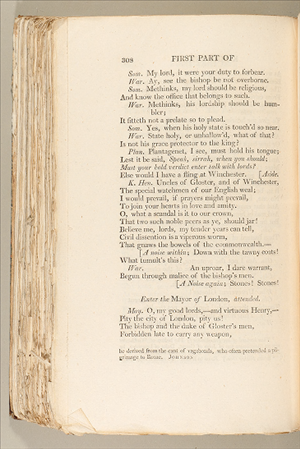 308 FIRST PART OF
Som. My lord, it were your duty to forbear.
War. Ay, see the bishop be not overborne.
Som. Methinks, my lord should be religious,
And know the office that belongs to such.
War. Methinks, his lordship should be hum-
bler;
It fitteth not a prelate so to plead.
Som. Yes, when his holy state is touch'd so near.
War. State holy, or unhallow'd, what of that?
Is not his grace protector to the king?
Plan. Plantagenet, I see, must hold his tongue;
Lest it be said, Speak, sirrah, when you should;
Must your bold verdict enter talk with lords?
Else would I have a fling at Winchester. [Aside.
K. Hen. Uncles of Gloster, and of Winchester,
The special watchmen of our English weal;
I would prevail, if prayers might prevail,
To join your hearts in love and amity.
O, what a scandal is it to our crown,
That two such noble peers as ye, should jar!
Believe me, lords, my tender years can tell,
Civil dissention is a viperous worm,
That gnaws the bowels of the commonwealth.—
[A noise within; Down with the tawny coats!
What tumult's this?
War. An uproar, I dare warrant,
Begun through malice of the bishop's men.
[A Noise again; Stones! Stones!
Enter the Mayor of London, attended.
May. O, my good lords,—and virtuous Henry,—
Pity the city of London, pity us!
The bishop and the duke of Gloster's men,
Forbidden late to carry any weapon,
be derived from the cant of vagabonds, who often pretended a pil-
grimage to Rome. JOHNSON.